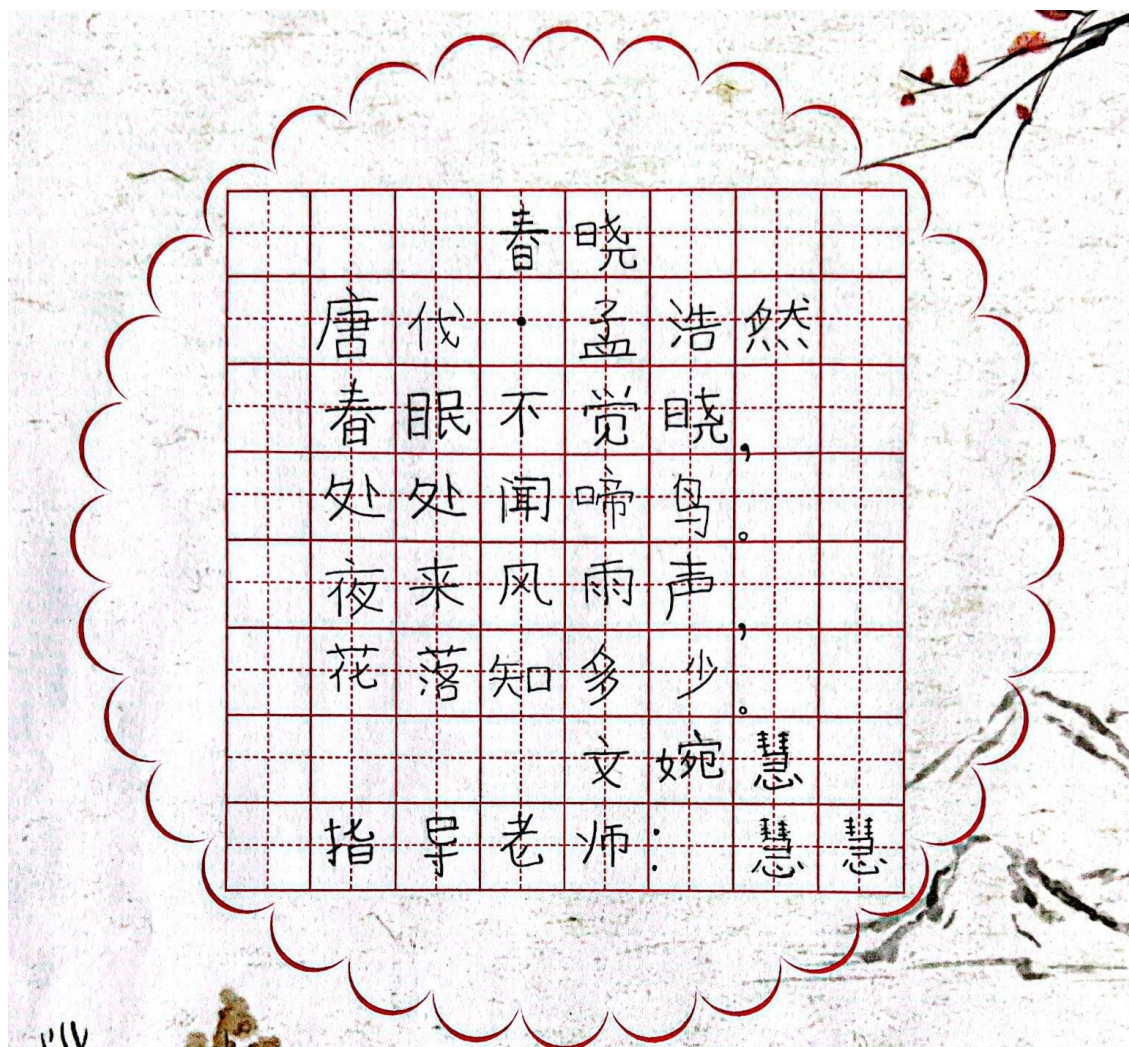 春晓
唐代·孟浩然
春眠不觉晓，
处处闻啼鸟。
夜来风雨声，
花落知多少。
文婉慧
指导老师： 慧慧